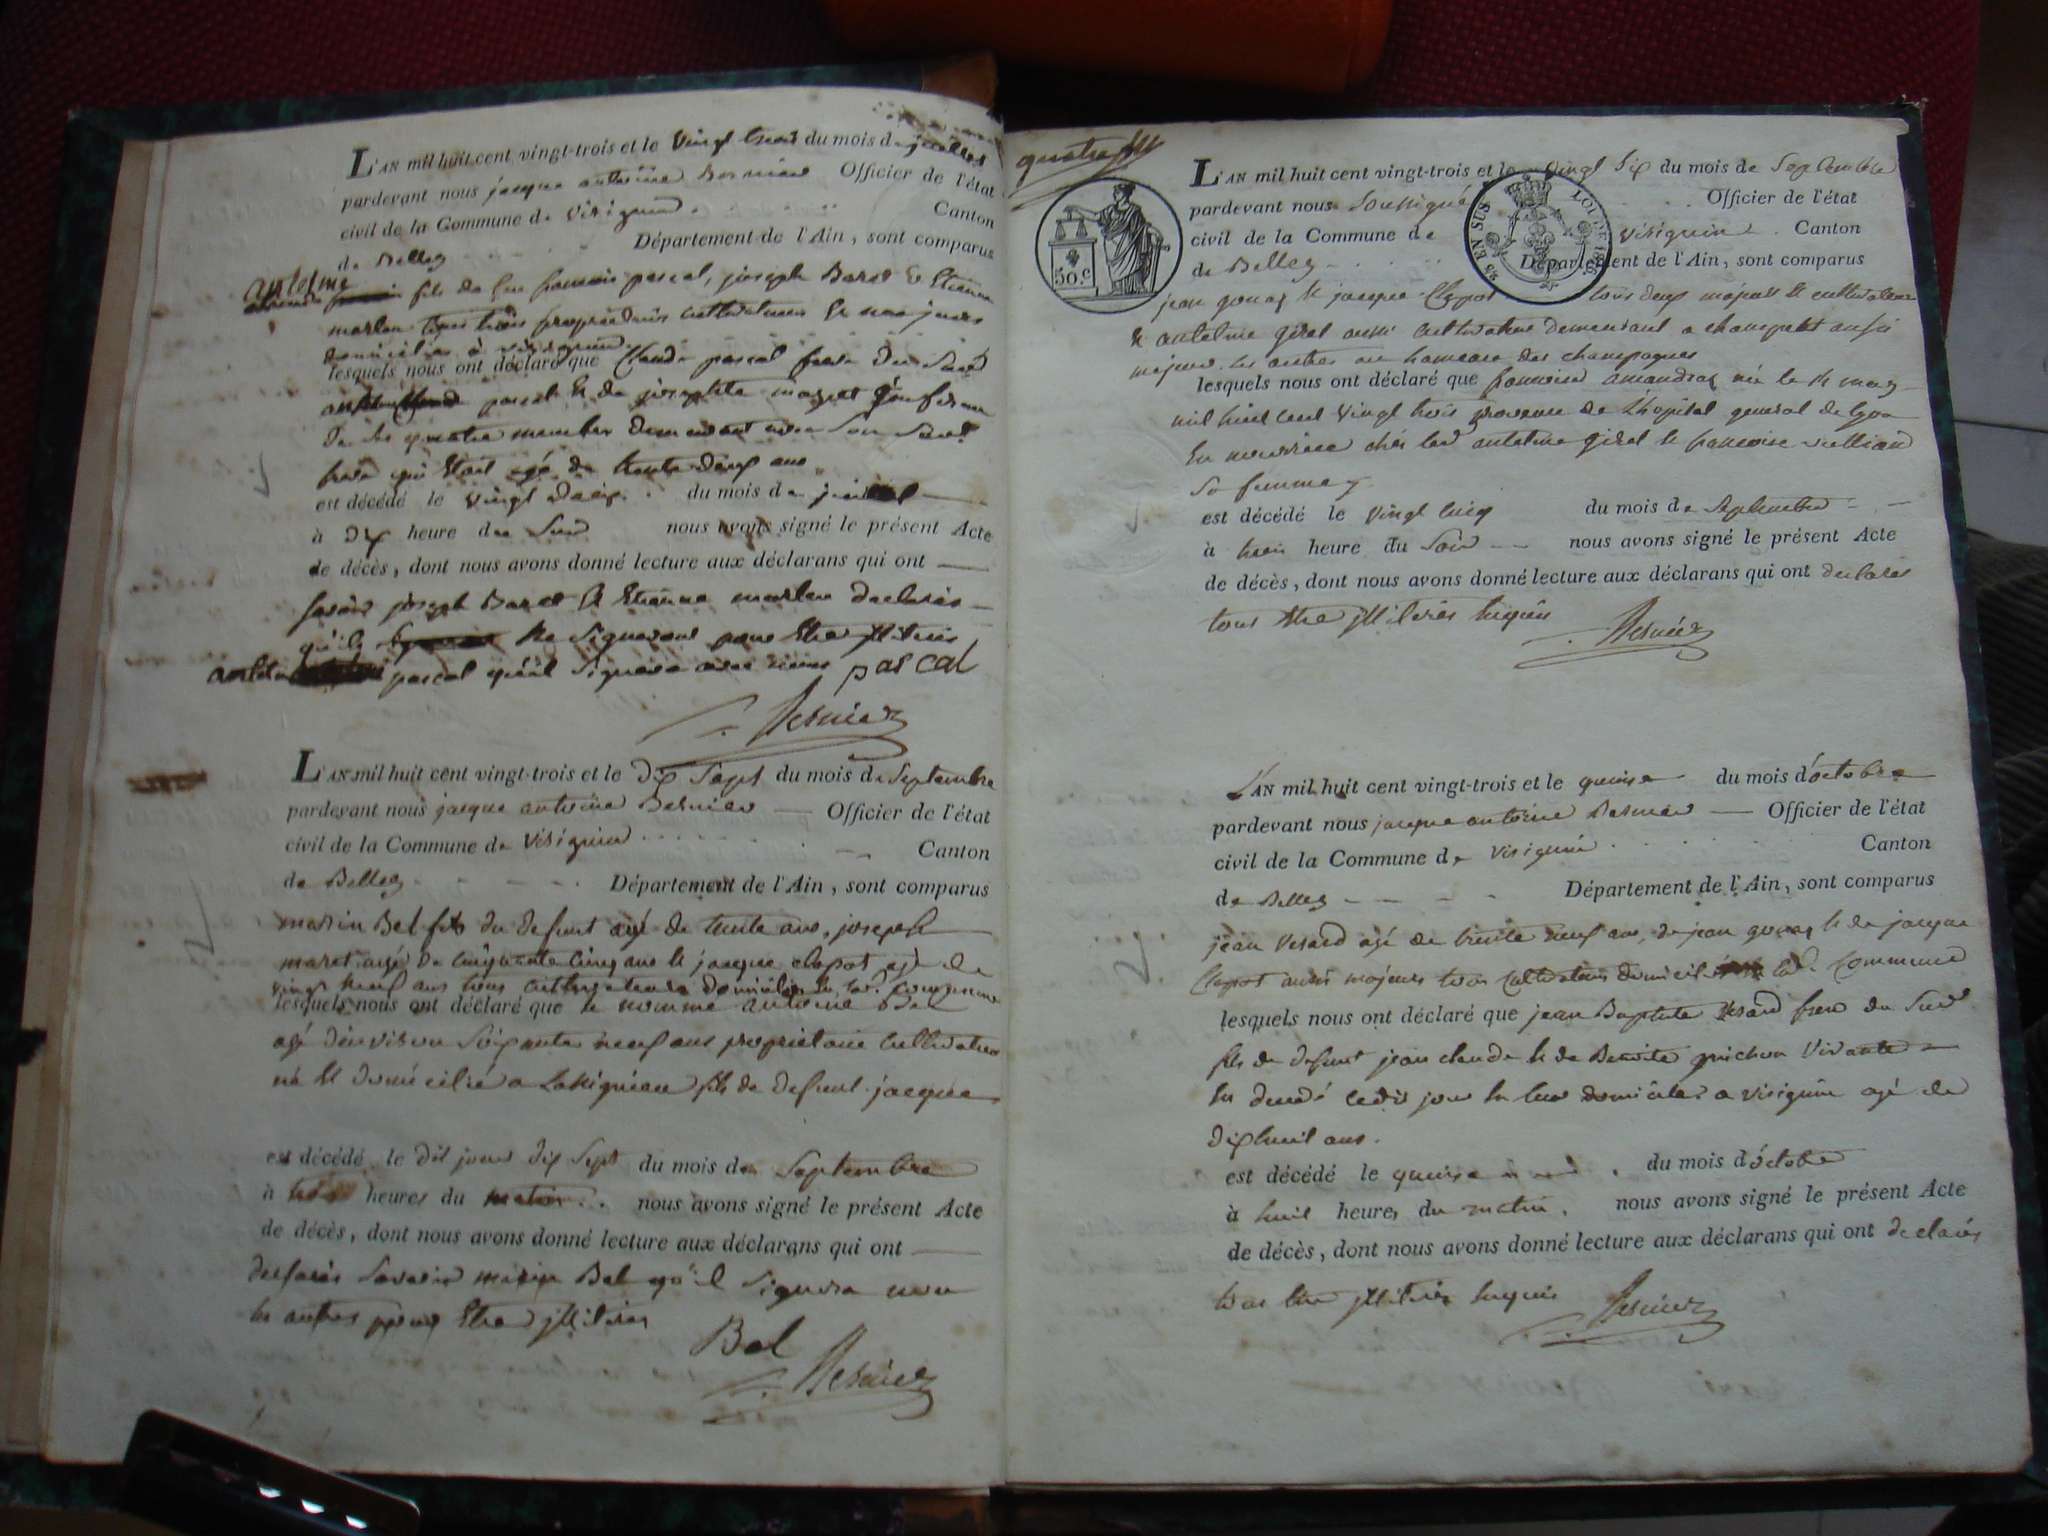 L'AN mil huit cent vingt-trois et le vingt trois du mois de juillet
pardevant nous jacque antoine Bernier Officier de l'état
civil de la Commune de Virignin Canton
de Belley Département de l'Ain, sont comparus
antelme
fils de feu francois pascal, joseph Baret & Etienne
marlen tous trois propriétaires cultivateurs &
domiciliés à virignin
lesquels nous ont déclaré que Claude pascal frere du Sus d
pascal & de josephte
de ses quatre membres demeurant avec Son Susd.
frere qui Etait agé de trente deux ans
est décédé le vingt deux du mois de juillet
à Dix heure du Soir nous avons signé le présent Acte
de décès, dont nous avons donné lecture aux déclarans qui ont
savoir joseph Baret & Etienne marlen declarés
qu'ils ne Signeront pour Etre jllitérés
pascal qu'il Signera avec nous pascal
Bernier
L'AN mil huit cent vingt-trois et le dix Sept du mois de Septembre
pardevant nous jacque antoine Bernier Officier de l'état
civil de la Commune de Virignin Canton
de Belley Département de l'Ain, sont comparus
marin Bel fils du defunt agé de trente ans, joseph
maret agé de cinquante cinq ans & jacque clapot agé de
vingt neuf ans tous cultivateurs domiciliés en lad. commune
lesquels nous ont déclaré que le nommé antoine Bel
agé d'environ Soixante neuf ans propriétaire cultivateur
né & domicilié a fils de defunt jacque
est décédé le dit jour dix Sept du mois de Septembre
à trois heures du matin nous avons signé le présent Acte
de décès, dont nous avons donné lecture aux déclarans qui ont
declarés Savoir marin Bel qu'il Signera non
les autres pour Etre jllitérés
Bel
Bernier
50.c
25 EN SUS LOI DE 1816
L'AN mil huit cent vingt-trois et le vingt Six du mois de Septembre
pardevant nous Soussigné Officier de l'état
civil de la Commune de Virignin Canton
de Belley Département de l'Ain, sont comparus
jean gonas & jacque Clapot tous deux majeurs & cultivateurs
& antelme giret aussi cultivateur demeurant a aussi
majeur les autres au hameau des champagnes
lesquels nous ont déclaré que francoise née le
mil huit cent vingt trois provenue de L'hopital general de Lyon
En nourrice chés led antelme giret & francoise
Sa femme
est décédé le vingt cinq du mois de Septembre
à trois heure du Soir nous avons signé le présent Acte
de décès, dont nous avons donné lecture aux déclarans qui ont declarés
tous Etre jllitérés requis
Bernier
L'AN mil huit cent vingt-trois et le quinze du mois d'octobre
pardevant nous jacque antoine Bernier Officier de l'état
civil de la Commune de Virignin Canton
de Belley Département de l'Ain, sont comparus
jean Verard agé de trente neuf ans, de jean gonas & de jacque
Clapot aussi majeurs tous cultivateurs domiciliés lad. Commune
lesquels nous ont déclaré que jean Baptiste Verard frere du Susd
fils de defunt jean claude & de Benoite guichon Vivante
en leur domicile a virignin agé de
dixhuit ans.
est décédé le quinze du mois d'octobre
à huit heures du matin, nous avons signé le présent Acte
de décès, dont nous avons donné lecture aux déclarans qui ont declarés
tous Etre jllitérés requis
Bernier